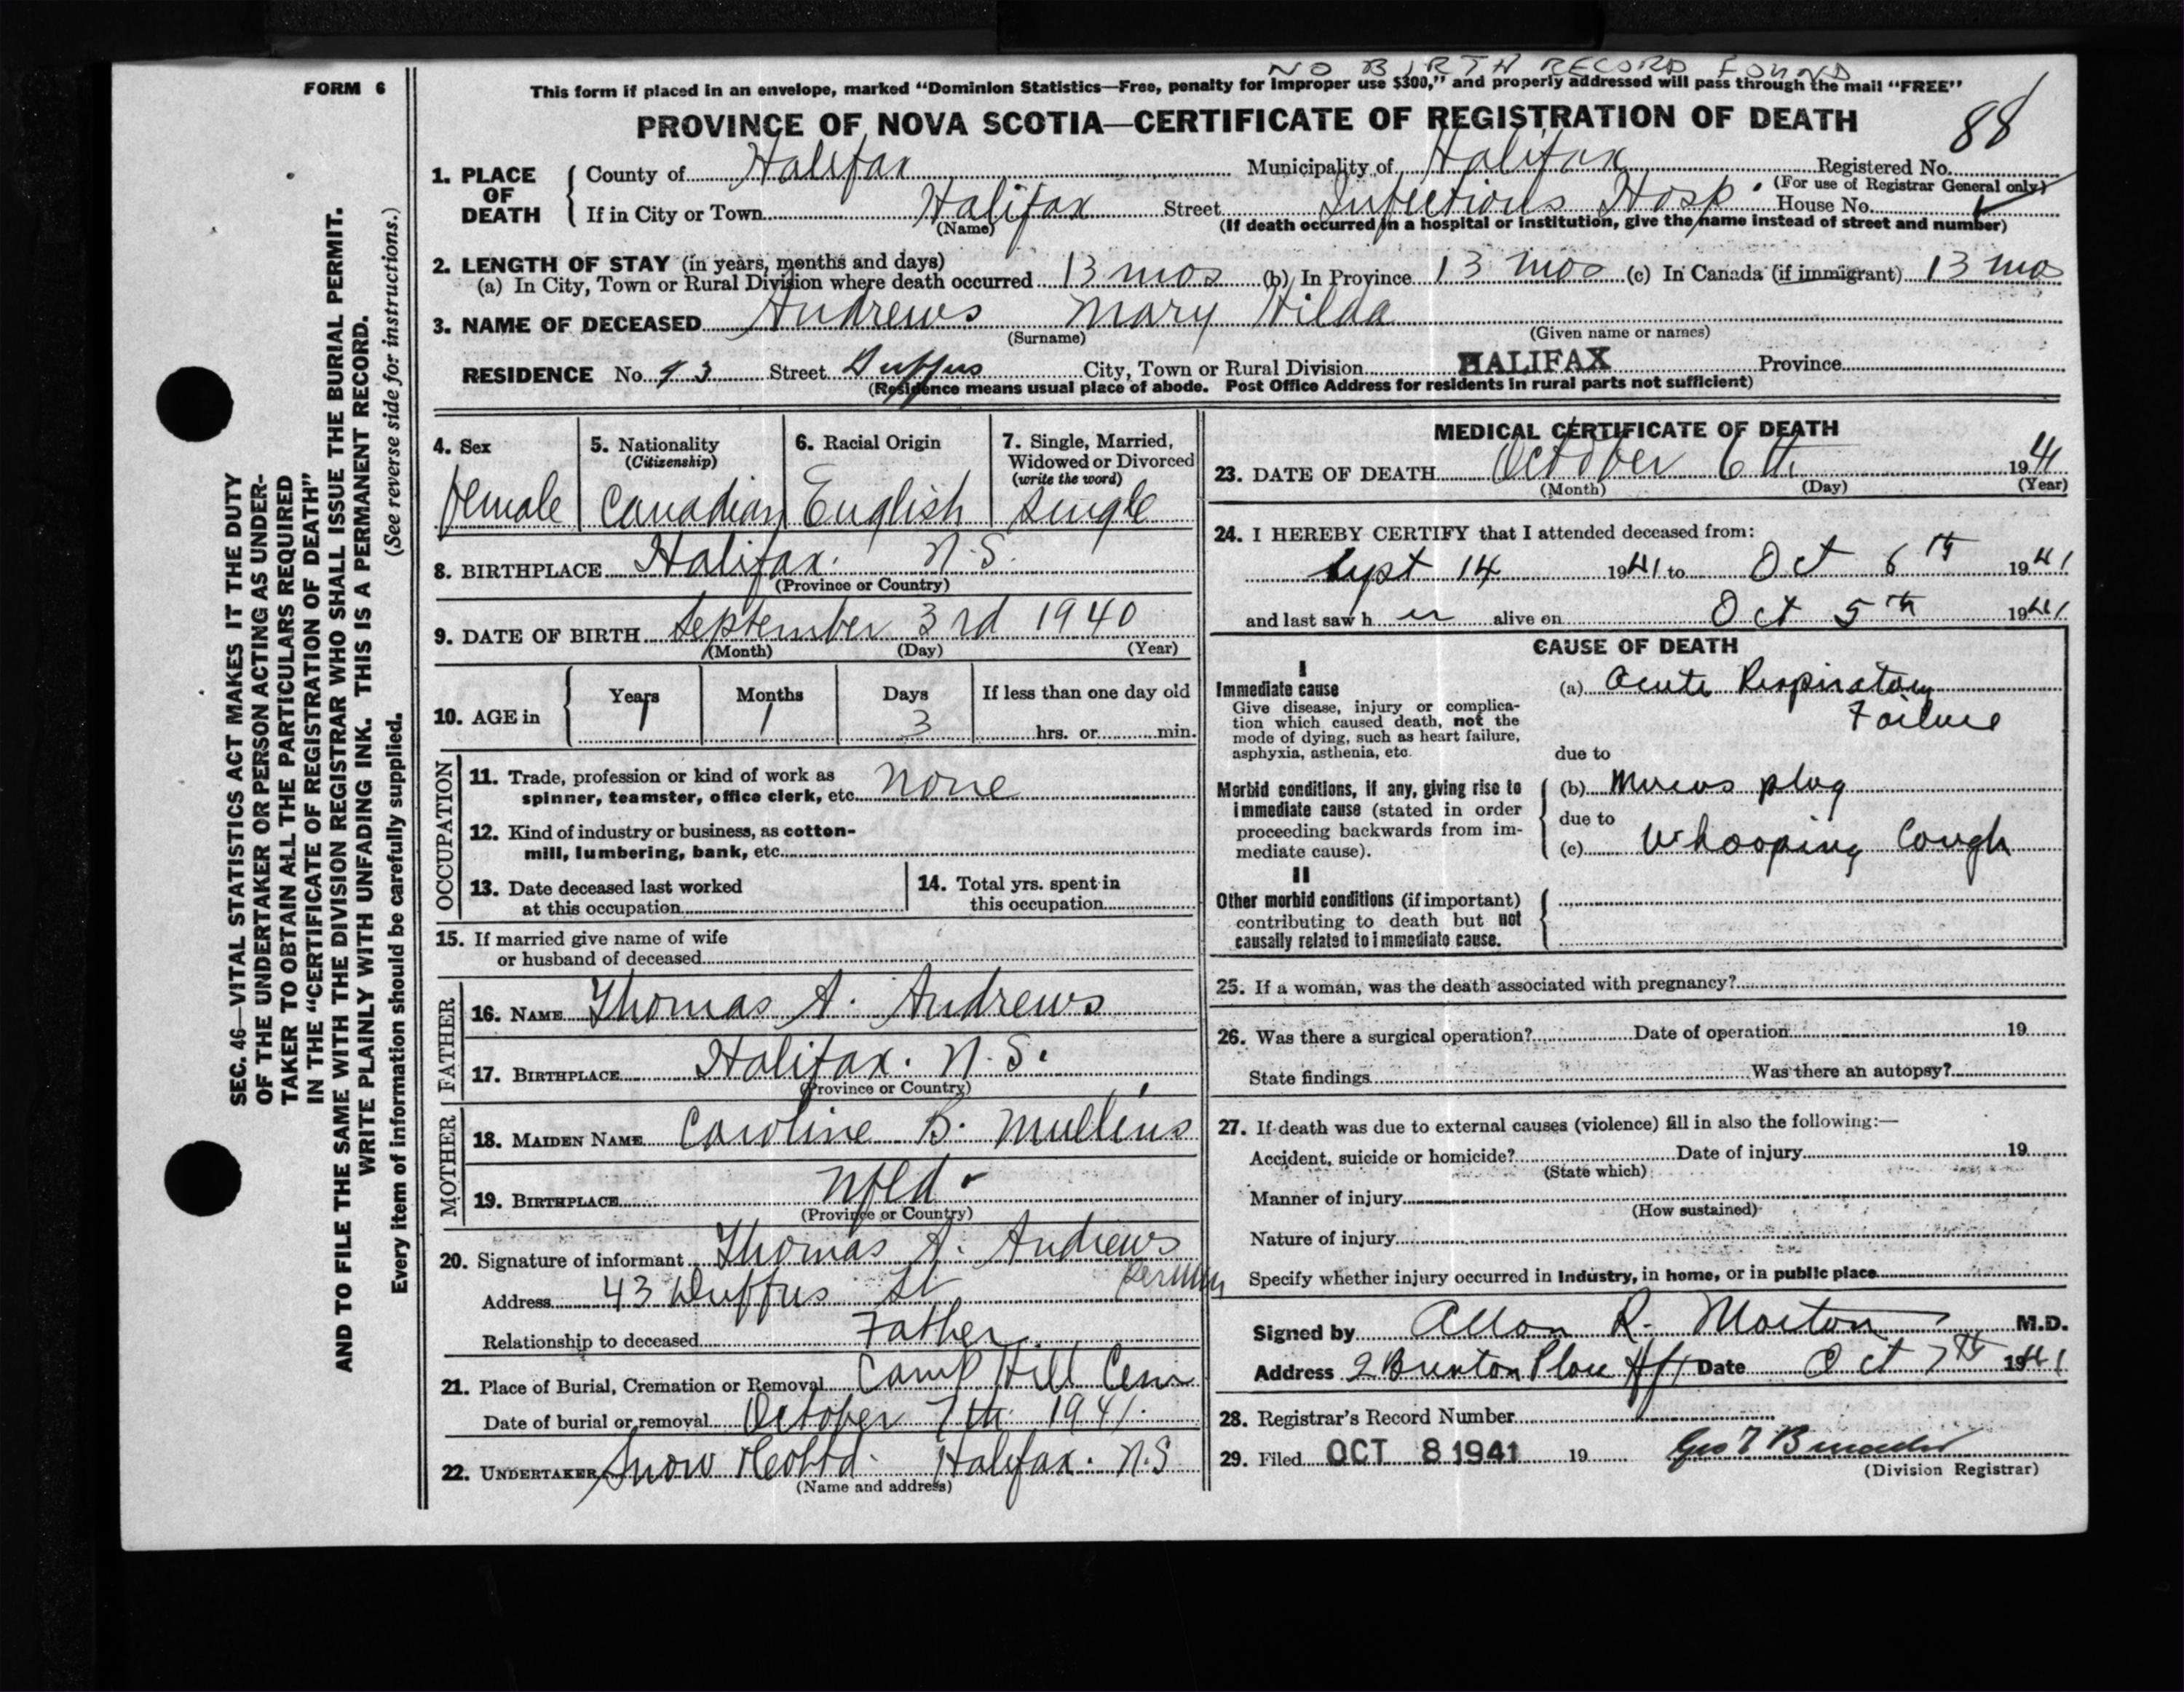 NO BIRTH RECORD FOUND
FORM 6
This form if placed in an envelope, marked "Dominion Statistics—Free, penalty for improper use $300," and properly addressed will pass through the mail "FREE"
PROVINCE OF NOVA SCOTIA—CERTIFICATE OF REGISTRATION OF DEATH
88
1. PLACE OF DEATH
County of Halifax Municipality of Halifax Registered No.
(For use of Registrar General only)
If in City or Town Halifax Street Infectious Hosp. House No.
(Name) (If death occurred in a hospital or institution, give the name instead of street and number)
2. LENGTH OF STAY (in years, months and days)
(a) In City, Town or Rural Division where death occurred 13 mos (b) In Province 13 mos (c) In Canada (if immigrant) 13 mo
3. NAME OF DECEASED Andrews Mary Hilda
(Surname) (Given name or names)
RESIDENCE No. 43 Street Duffus City, Town or Rural Division HALIFAX Province
(Residence means usual place of abode. Post Office Address for residents in rural parts not sufficient)
4. Sex
Female
5. Nationality
(Citizenship)
Canadian
6. Racial Origin
English
7. Single, Married,
Widowed or Divorced
(write the word)
Single
8. BIRTHPLACE Halifax. N.S.
(Province or Country)
9. DATE OF BIRTH September 3rd 1940
(Month) (Day) (Year)
10. AGE in
Years Months Days If less than one day old
1 1 3 hrs. or min.
OCCUPATION
11. Trade, profession or kind of work as
spinner, teamster, office clerk, etc. None
12. Kind of industry or business, as cotton-
mill, lumbering, bank, etc.
13. Date deceased last worked
at this occupation
14. Total yrs. spent in
this occupation
15. If married give name of wife
or husband of deceased
FATHER
16. NAME Thomas A. Andrews
17. BIRTHPLACE Halifax. N.S.
(Province or Country)
MOTHER
18. MAIDEN NAME Caroline B. Mullins
19. BIRTHPLACE Nfld.
(Province or Country)
20. Signature of informant Thomas A. Andrews
Address 43 Duffus St
Relationship to deceased Father
21. Place of Burial, Cremation or Removal Camp Hill Cem
Date of burial or removal October 7th 1941.
22. UNDERTAKER Snow & Co Ltd. Halifax. N.S
(Name and address)
MEDICAL CERTIFICATE OF DEATH
23. DATE OF DEATH October 6th 1941
(Month) (Day) (Year)
24. I HEREBY CERTIFY that I attended deceased from:
Sept 14 1941 to Oct 6th 1941
and last saw h er alive on Oct 5th 1941
CAUSE OF DEATH
I
Immediate cause
Give disease, injury or complica-
tion which caused death, not the
mode of dying, such as heart failure,
asphyxia, asthenia, etc.
(a) Acute Respiratory
Failure
due to
Morbid conditions, if any, giving rise to
immediate cause (stated in order
proceeding backwards from im-
mediate cause).
(b) Mucus plug
due to
(c) Whooping Cough
II
Other morbid conditions (if important)
contributing to death but not
causally related to immediate cause.
25. If a woman, was the death associated with pregnancy?
26. Was there a surgical operation? Date of operation 19
State findings Was there an autopsy?
27. If death was due to external causes (violence) fill in also the following:—
Accident, suicide or homicide? Date of injury 19
(State which)
Manner of injury
(How sustained)
Nature of injury
Specify whether injury occurred in Industry, in home, or in public place
Signed by Allan R. Morton M.D.
Address 2 Brunton Place Hfx Date Oct 7th 1941
28. Registrar's Record Number
29. Filed OCT 8 1941 19
(Division Registrar)
SEC. 46—VITAL STATISTICS ACT MAKES IT THE DUTY
OF THE UNDERTAKER OR PERSON ACTING AS UNDER-
TAKER TO OBTAIN ALL THE PARTICULARS REQUIRED
IN THE "CERTIFICATE OF REGISTRATION OF DEATH"
AND TO FILE THE SAME WITH THE DIVISION REGISTRAR WHO SHALL ISSUE THE BURIAL PERMIT.
WRITE PLAINLY WITH UNFADING INK. THIS IS A PERMANENT RECORD.
Every item of information should be carefully supplied. (See reverse side for instructions.)